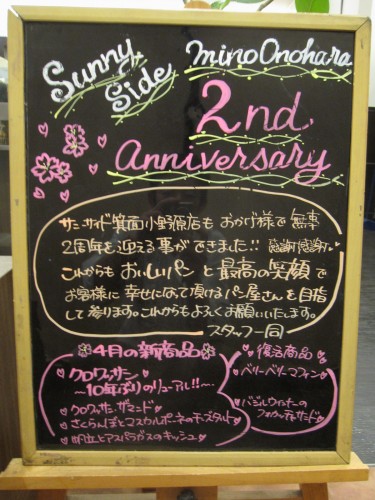 Sunny Side
Mino Onohara
2nd
Anniversary
サニーサイド箕面小野原店も おかげ様で 無事
2周年を迎える事ができました!! 感謝感謝♥
これからも おいしいパン と 最高の笑顔 で
お客様に 幸せになって頂けるパン屋さんを目指
して参ります。これからもよろしくお願いいたします。
スタッフ一同
4月の新商品
クロワッサン
〜10年ぶりのリニューアル!!〜
クロワッサンザマンド
さくらんぼとマスカルポーネのチーズタルト
帆立とアスパラガスのキッシュ
復活商品
ベリーベリーマフィン
バジルウインナーの
フォカッチャサンド